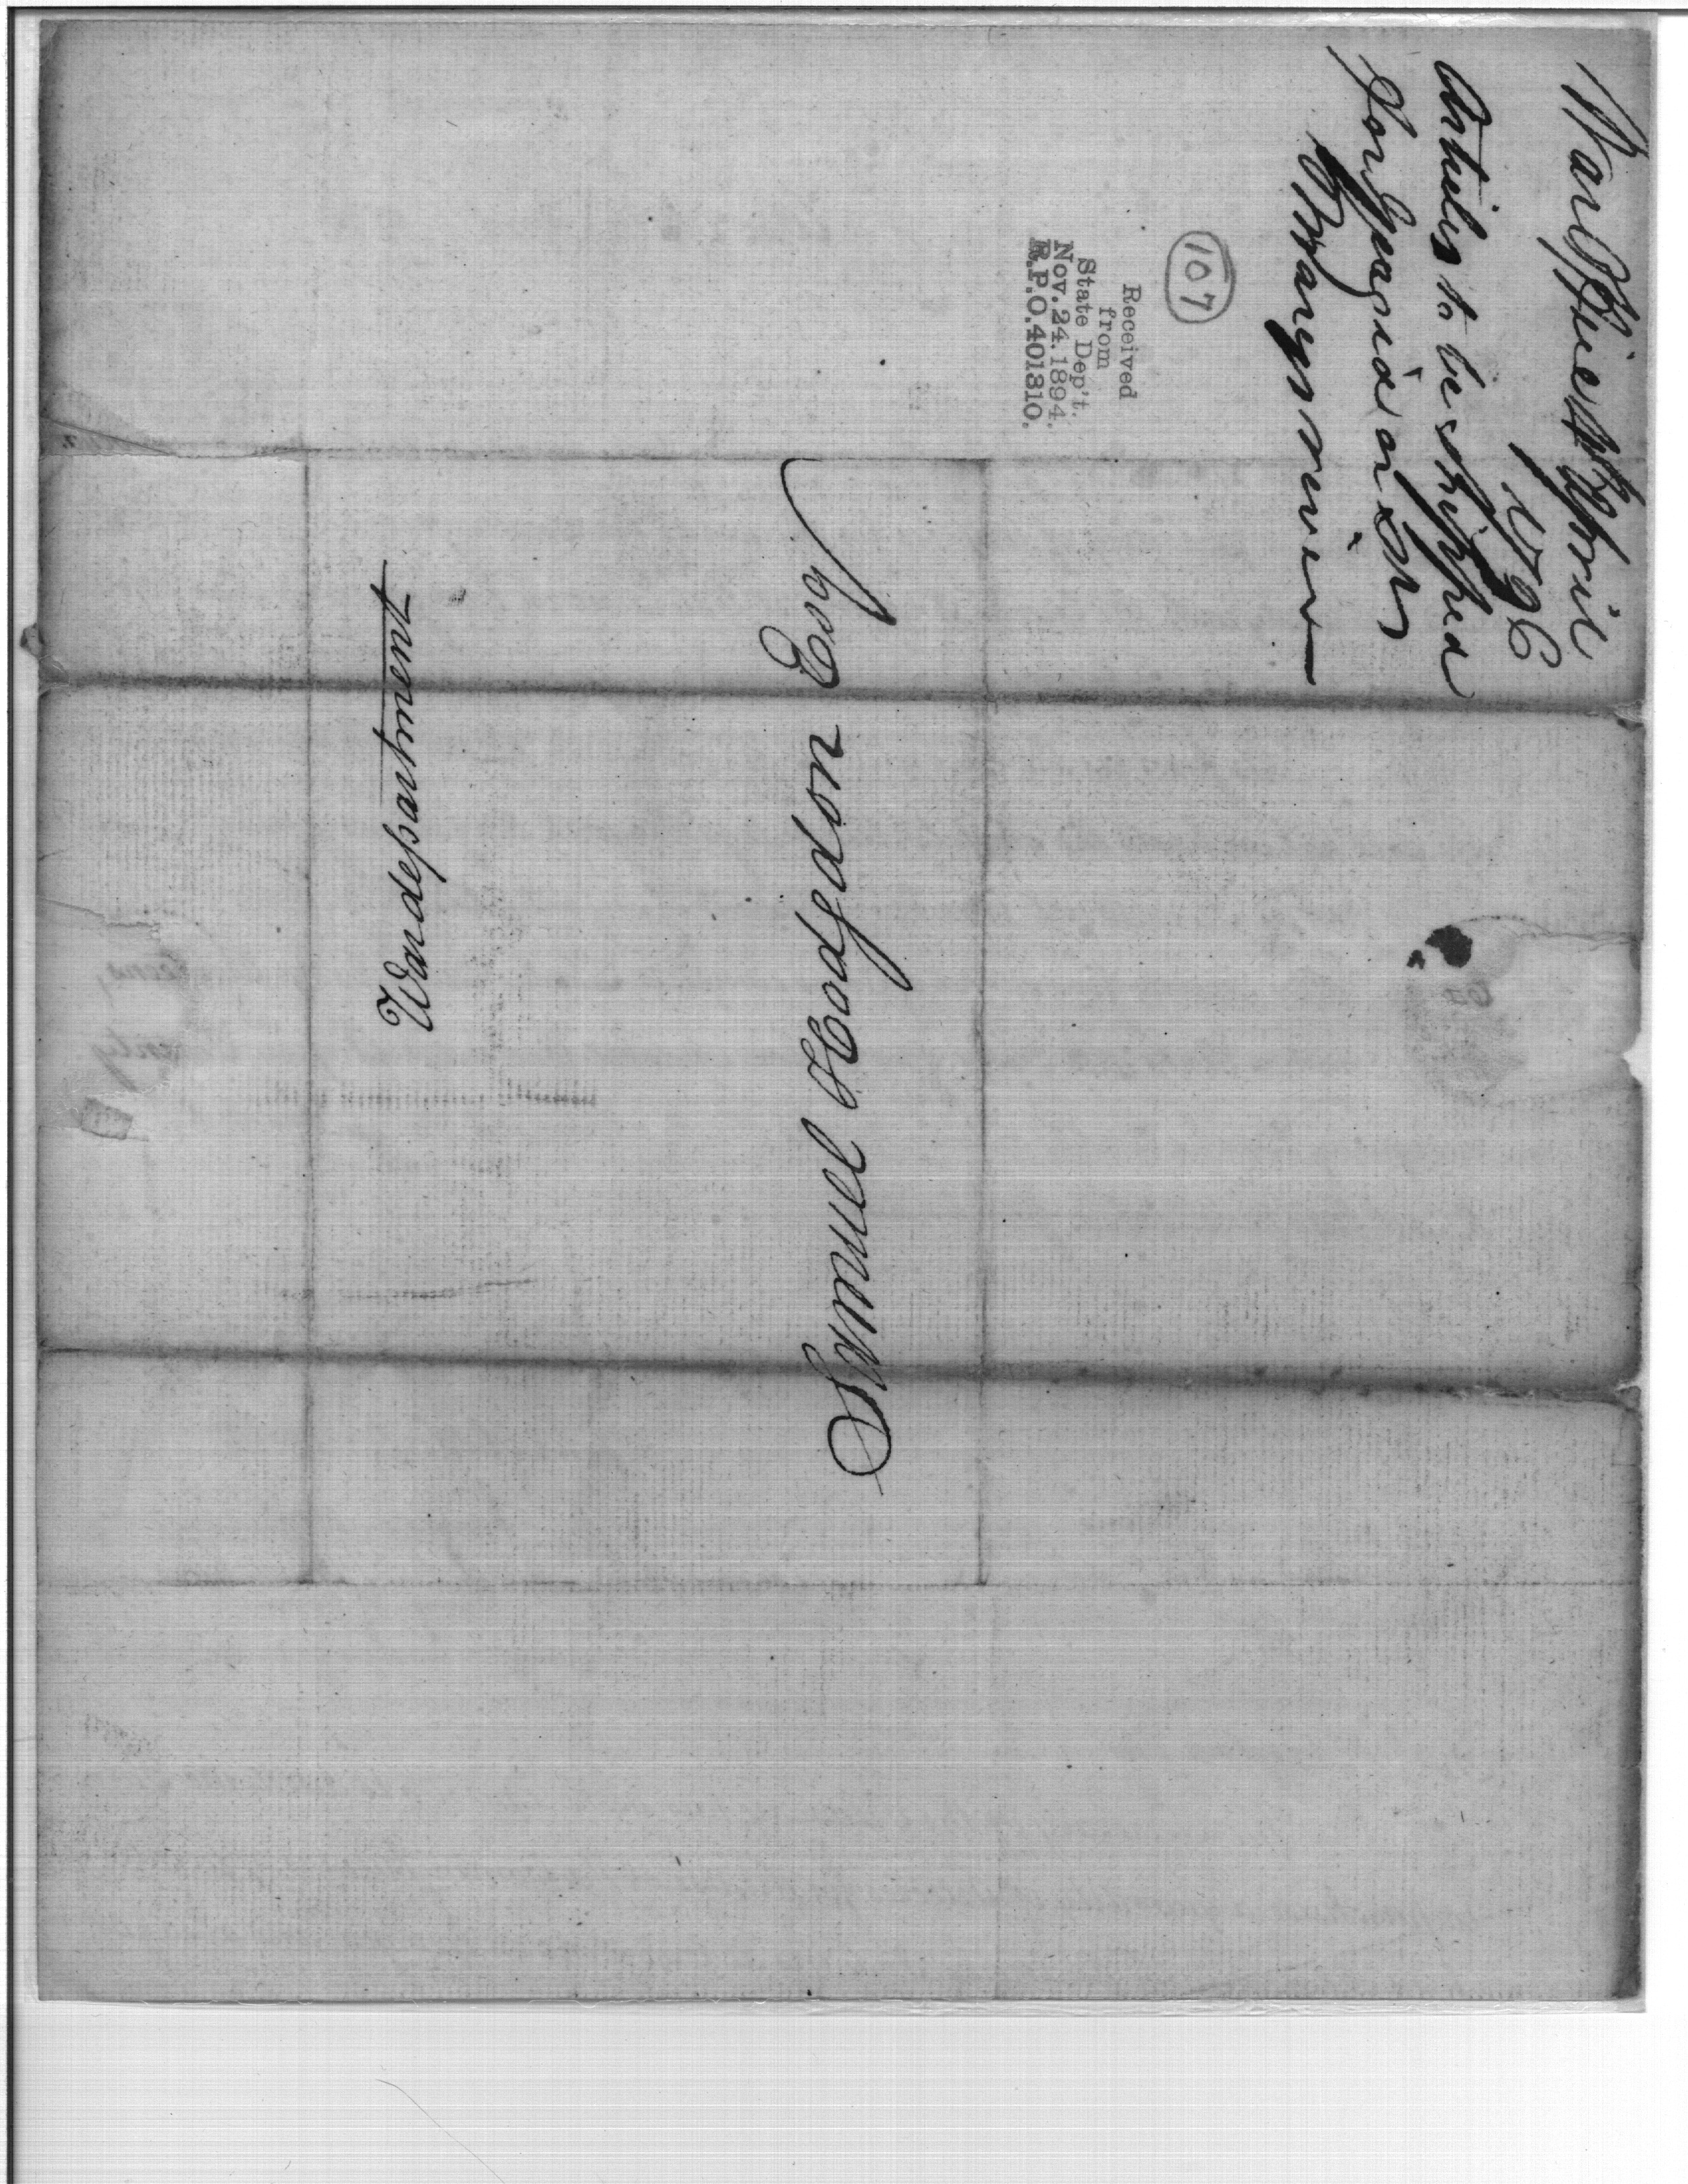 War Office April
1796
Articles to be shipped
for Georgia on
Received
from
State Dep't.
Nov. 24. 1894.
R.P.O. 401310.
107
Samuel Hodgdon Esq
War department